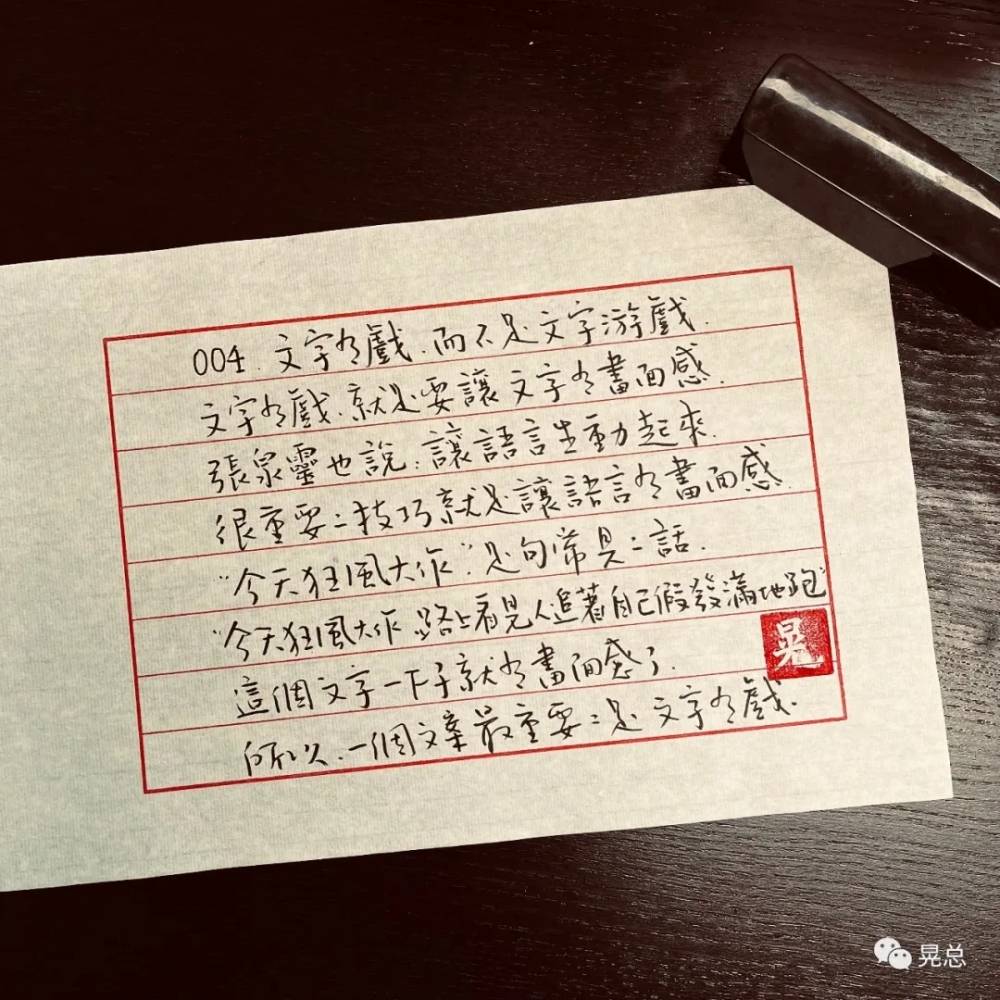 004.文字有戲.而不是文字游戲.
文字有戲.就是要讓文字有畫面感.
張泉靈也說:讓語言生動起來.
很重要ニ技巧就是讓語言有畫面感.
“今天狂風大作.”是句常見ニ話.
“今天狂風大作 路上看見人追著自己假發滿地跑”
這個文字一下子就有畫面感了.
所以.一個文案最重要ニ是文字有戲.
晃
晃总